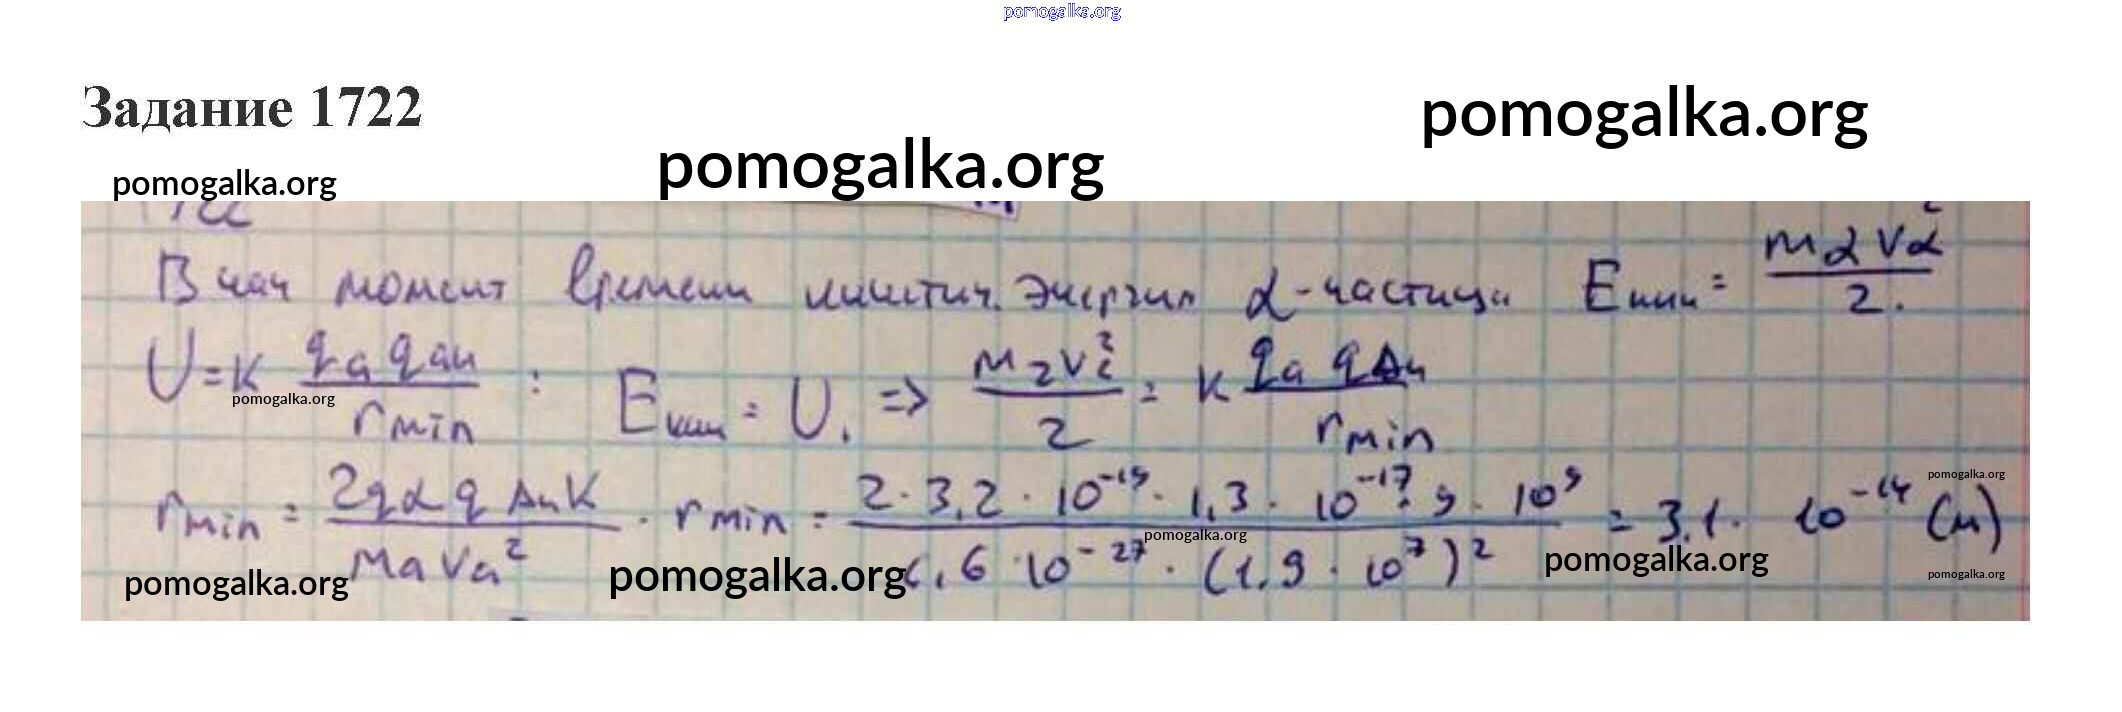 pomogalka.org
Задание 1722
pomogalka.org
pomogalka.org
pomogalka.org
1722
В нач момент времени кинетич. энергия α-частицы Eкин = mαvα² / 2.
U = k qα qAu / rmin : Eкин = U. => m2v² / 2 = k qα qAu / rmin
pomogalka.org
rmin = 2qα qAu k / mαvα² . rmin = 2 · 3,2 · 10⁻¹⁹ · 1,3 · 10⁻¹⁷ · 9 · 10⁹ / 6,6 · 10⁻²⁷ · (1,9 · 10⁷)² = 3,1 · 10⁻¹⁴ (м)
pomogalka.org
pomogalka.org
pomogalka.org
pomogalka.org
pomogalka.org
pomogalka.org